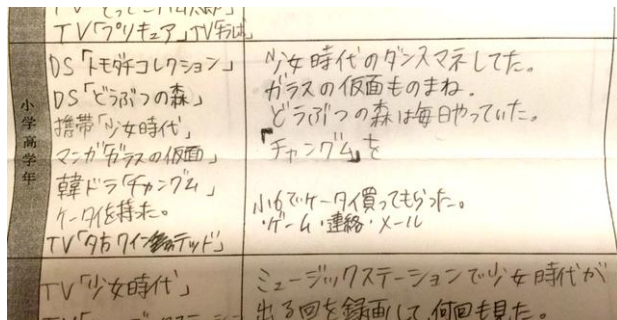 TV「プリキュア」TV
小学高学年
DS「トモダチコレクション」
DS「どうぶつの森」
携帯「少女時代」
マンガ「ガラスの仮面」
韓ドラ「チャングム」
ケータイを持った。
TV「夕方クインテッド」
少女時代のダンスマネしてた。
ガラスの仮面ものまね。
どうぶつの森は毎日やっていた。
「チャングム」を
小6でケータイ買ってもらった。
・ゲーム・連絡・メール
TV「少女時代」
ミュージックステーションで少女時代が
出る回を録画して、何回も見た。